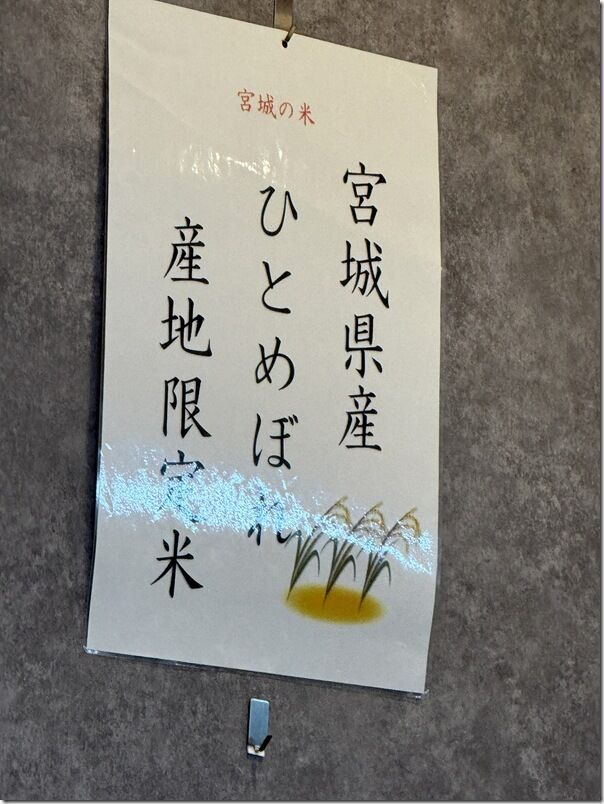 宮城の米
宮城県産
ひとめぼれ
産地限定米